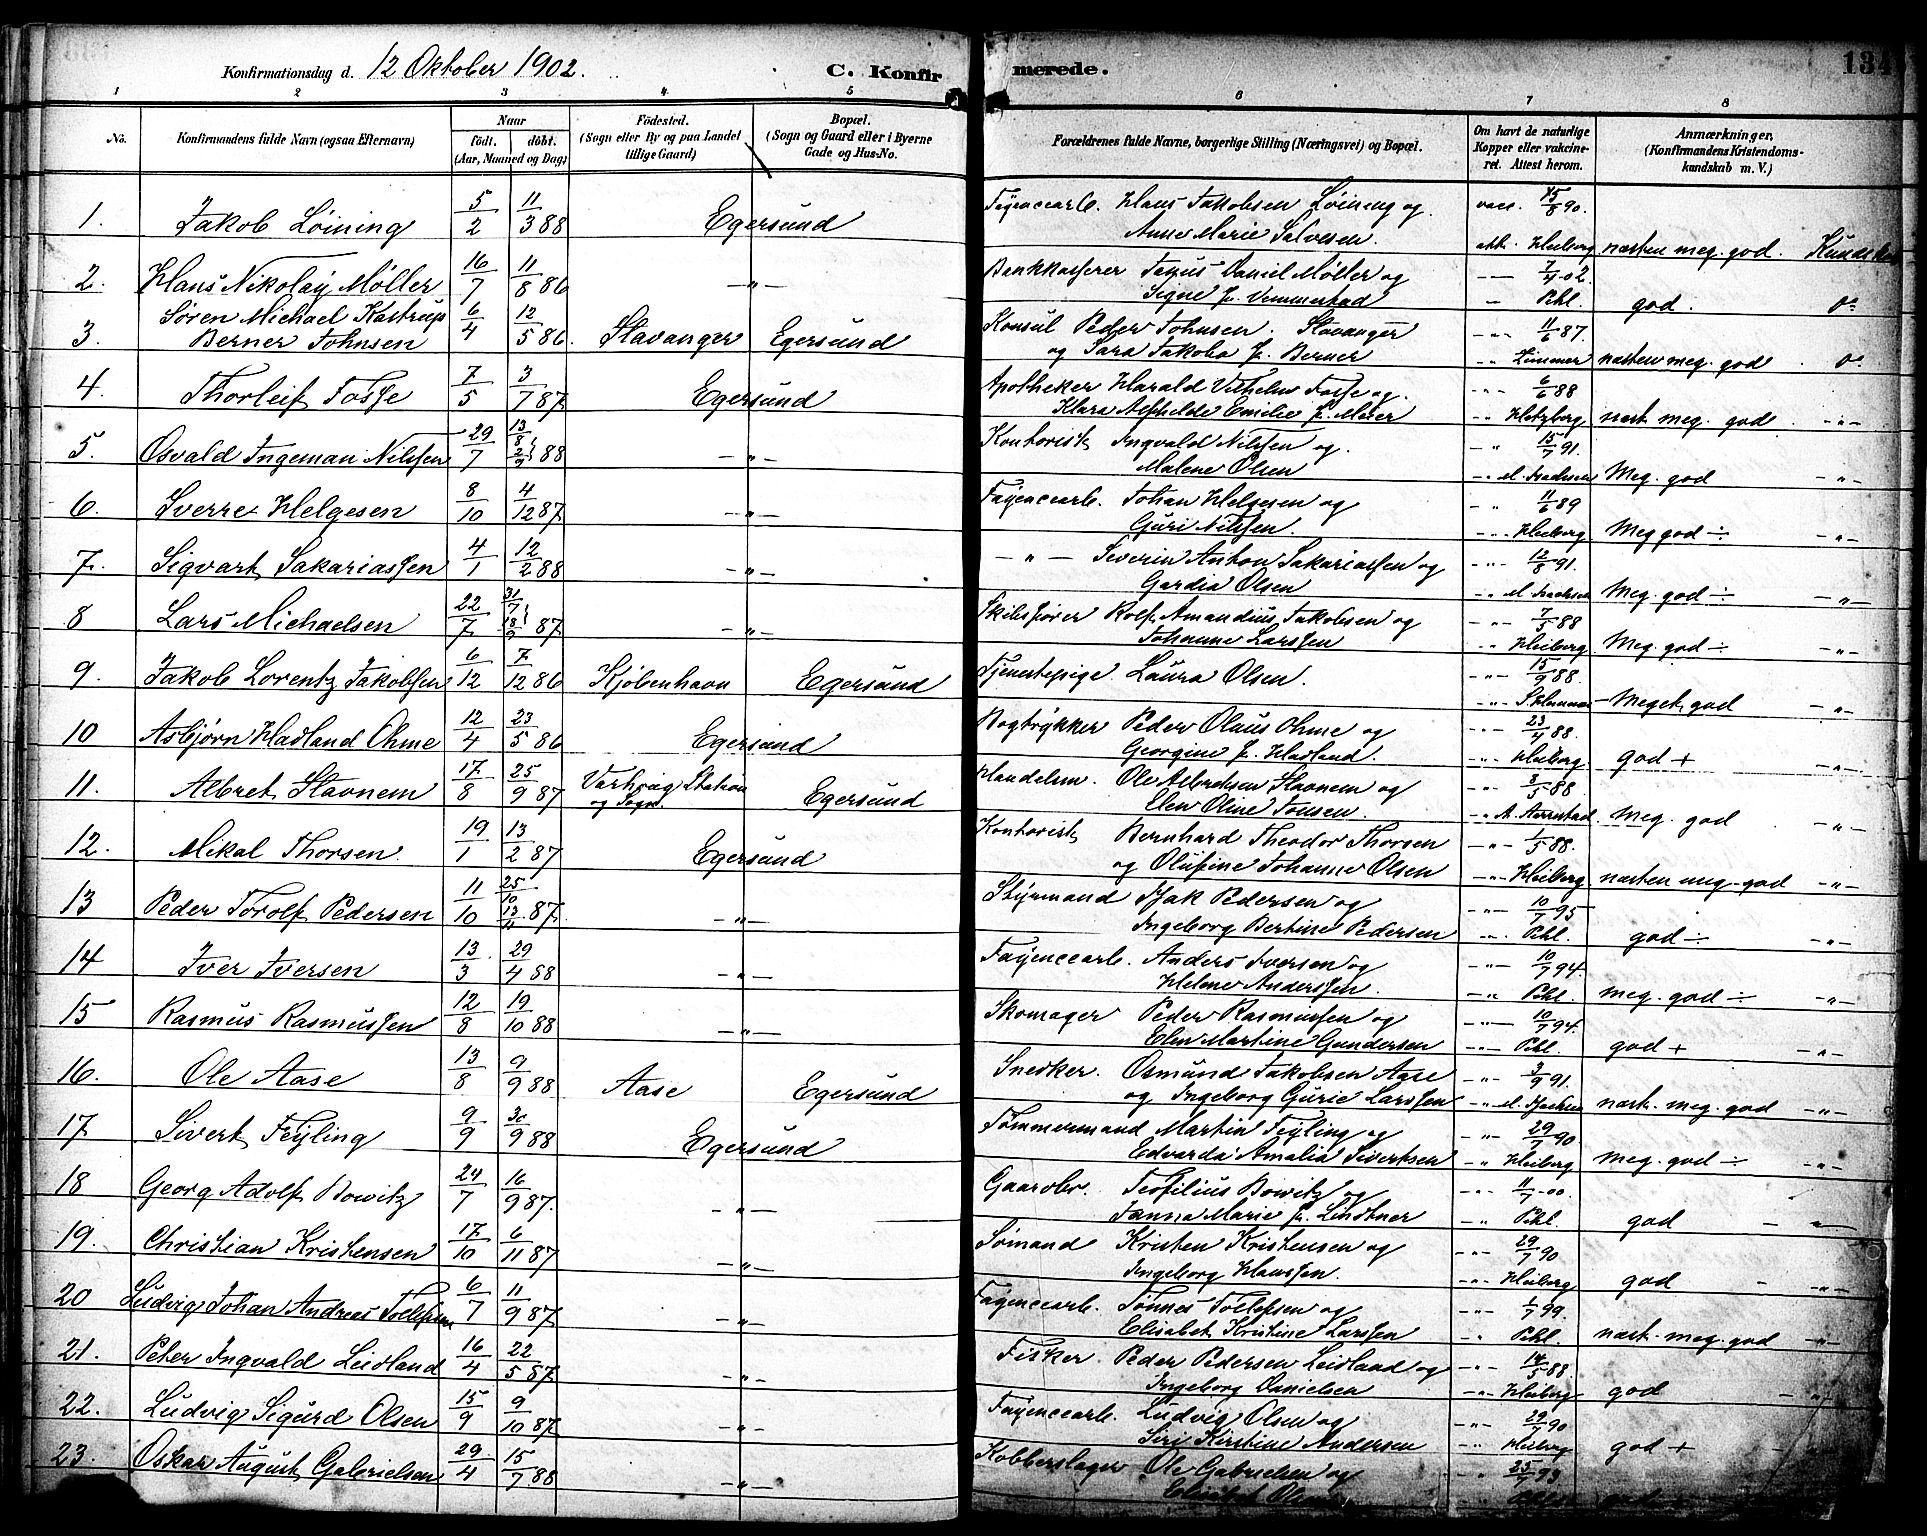 Konfirmationsdag d. 12 Oktober 1902. C. Konfirmerede. 134
1 2 3 4 5 6 7 8
No. Konfirmandens fulde Navn (ogsaa Efternavn) Naar födt. döbt. (Aar, Maaned og Dag) Födested. (Sogn eller By og paa Landet tillige Gaard) Bopæl. (Sogn og Gaard eller i Byerne Gade og Hus-No. Forældrenes fulde Navne, borgerlige Stilling (Næringsvei) og Bopæl. Om havt de naturlige Kopper eller vakcineret. Attest herom. Anmærkninger, (Konfirmandens Kristendomskundskab m. V.)
1. Jakob Löining 5/2 11/3 88 Egersund Fayencearb. Hans Jakobsen Löining og vacc. 15/8 90.
Anne Marie Salvesen. att. Heiberg næsten meg. god. Kundskab
2. Hans Nikolay Möller 16/7 11/8 86 -"- Bankkasserer Daniel Möller og -"- 7/4 02
Signe f. Vemmestad " Pihl. god. do
3. Sören Michael Kastrup Berner Johnsen 6/4 12/5 86. Stavanger Egersund Konsul Peder Johnsen. Stavanger -"- 11/6 87.
og Sara Jakoba f. Berner " næsten meg. god do
4. Thorleif Fosse 7/5 3/7 87 Egersund Apotheker Harald Vilhelm Fosse og -"- 6/6 88
Klara Emilie f. Meier " Hetzberg næst. meg. god -"-
5. Osvald Ingeman Nilssen 29/7 13/8 2/9 88 -"- Kontorist Ingvald Nilssen og. " 15/7 91.
Malene Olsen -"- Meg. god -"-
6. Sverre Helgesen 8/10 4/12 87 -"- Fayencearb. Johan Helgesen og -"- 11/6 89
Guri Nilssen. -"- Heiberg Meg god ÷ -"-
7. Sigvart Sakariassen 4/1 12/2 88 -"- -"- Severin Anton Sakariassen og -"- 12/8 91.
Gardia Olsen " Meg. god ÷ -"-
8 Lars Michaelsen 22/7 31/7 18/9 87 -"- Skibsförer Rolf Amandius Jakobsen og -"- 7/5 88
Johanne Larssen " Heiberg Meg. god ÷ -"-
9. Jakob Lorentz Jakobsen 6/12 7/12 86 Kjöbenhavn Egersund Tjenestepige Laura Olsen. -"- 15/9 88.
-"- Meget god -"-
10 Asbjörn Hadland Ohme 12/4 23/5 86 Egersund Bogtrykker Peder Olaus Ohme og -"- 23/4 88.
Georgine f. Hadland. -"- Heiberg god + -"-
11. Albret Stavnem 17/8 25/9 87 Varhaug Station og Sogn. Egersund Handelsm. Ole Albretsen Stavnem og -"- 3/5 88.
Elen Oline Tonsen. " Meg. god -"-
12. Mikal Thorsen. 19/1 13/2 87 Egersund Kontorist Bernhard Theodor Thorsen -"- 1/5 88.
og Olufine Johanne Olsen -"- Heiberg næsten meg. god -"-
13 Peder Torolf Pedersen 11/10 25/10 13/11 87. -"- Styrmand Isak Pedersen og -"- 10/7 95
Ingeborg Bertine Pedersen -"- Pihl. god ÷ -"-
14 Iver Iversen 13/3 29/4 88 -"- Fayencearb. Anders Iversen og -"- 10/7 94.
Helene Anderssen. -"- Pihl. meg. god ÷ -"-
15 Rasmus Rasmussen 12/8 19/10 88 -"- Skomager Peder Rasmussen og -"- 10/7 94.
Elen Martine Gundersen -"- Pihl. god + -"-
16. Ole Aase 13/8 9/9 88 Aase Egersund Snedker. Osmund Jakobsen Aase -"- 3/9 91.
og Ingeborg Gurie Larssen " næst. meg. god -"-
17 Sivert Feyling 9/9 30/9 88 Egersund Tömmermand Martin Feyling og -"- 29/7 90
Edvarda Amalia Sivertsen -"- Heiberg meg. god ÷ -"-
18 Georg Adolf Bowitz 24/7 16/9 87. -"- Gaardbr. Teofilius Bowitz og -"- 11/7 -00.
Fanna Marie f. Lindtner -"- Pihl. god -"-
19. Christian Kristensen 17/10 6/11 87 -"- Sömand Kristen Kristensen og -"- 29/7 90
Ingeborg Hanssen. -"- Heiberg god -"-
20 Ludvig Johan Andreas Tollefsen 6/7 11/9 87 -"- Fayencearb. Tönnes Tollefsen og -"- 1/7 99.
Elisabet Kristine Larssen " Pihl. næst. meg. god -"-
21. Peter Ingvald Leidland 16/4 22/5 87 -"- Fisker. Peder Pedersen Leidland og -"- 14/5 88.
Ingeborg Danielsen -"- Heiberg god -"-
22. Ludvig Sigurd Olsen 15/9 9/10 87 -"- Fayencearb. Ludvig Olsen og -"- 29/7 90
Siri Kirstine Andersen -"- Heiberg god + -"-
23. Oskar August Gabrielsen 29/4 15/7 88 -"- Kobberslager Ole Gabrielsen og -"- 25/7 93
Elisabet